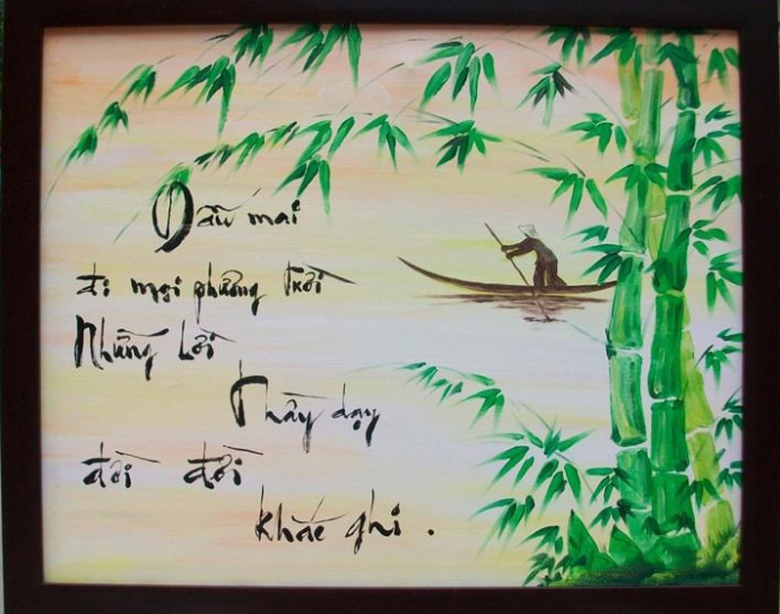 Dẫu mai
đi mọi phương trời
Những lời
Thầy dạy
đời đời
khắc ghi .